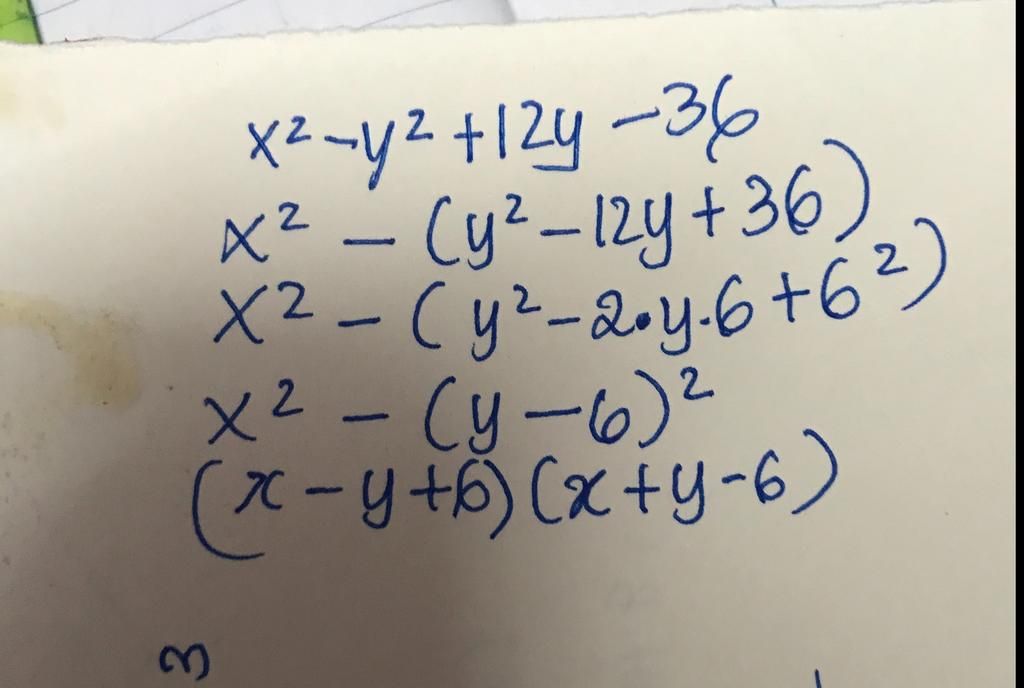 x² - y² + 12y - 36
x² - (y² - 12y + 36)
x² - (y² - 2·y·6 + 6²)
x² - (y - 6)²
(x - y + 6)(x + y - 6)